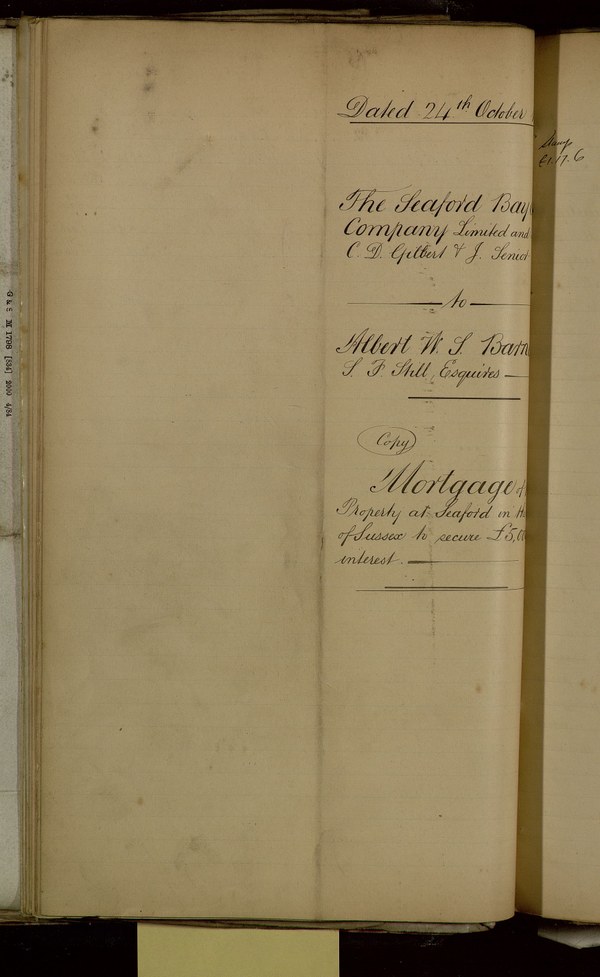 Dated 24th October
The Seaford Bay
Company Limited and
C. D. Gilbert & J. Senior
to
Albert W. S. Barn
S. F. Still, Esquires
Copy
Mortgage of
Property at Seaford in
of Sussex to secure £5,0
interest.
Stamp